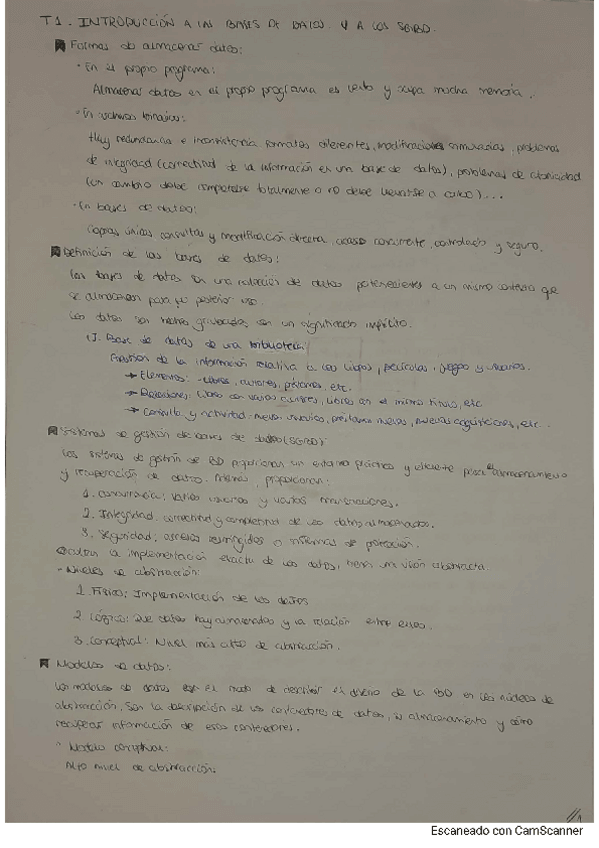 T1. INTRODUCCIÓN A LAS BASES DE DATOS Y A LOS SGBD.
Formas de almacenar datos:
· En el propio programa:
Almacenar datos en el propio programa es lento y ocupa mucha memoria.
· En
Hay redundancia e inconsistencia formatos diferentes, modificaciones simultáneas, problemas
de integridad (correctitud de la información en una base de datos), problemas de atomicidad
(un cambio debe completarse totalmente o no debe llevarse a cabo)...
· En bases de datos:
Copias únicas consultas y modificación directa, acceso concurrente, controlado y seguro.
Definición de las bases de datos:
Las bases de datos son una colección de datos pertenecientes a un mismo contexto que
se almacenan para su posterior uso.
Los datos son hechos grabados, con un significado implícito.
EJ. Base de datos de una biblioteca:
Gestión de la información relativa a los libros, películas, juegos y usuarios.
→ Elementos: libros, autores, préstamos, etc.
→ Relaciones: Libro con varios autores, libros con el mismo título, etc
→ Consulta y actividad: nuevos usuarios, préstamos nuevos, nuevas adquisiciones, etc..
Sistemas de gestión de bases de datos (SGBD):
Los sistemas de gestión de BD proporcionan un entorno práctico y eficiente para el almacenamiento
y recuperación de datos. Además, proporcionan:
1. Concurrencia: varios usuarios y varias
2. Integridad: correctitud y completitud de los datos almacenados.
3. Seguridad: accesos restringidos o sistemas de protección.
Ocultan la implementación exacta de los datos, tienen una visión abstracta.
- Niveles de abstracción:
1. Físico: Implementación de los datos
2. Lógico: Qué datos hay almacenados y la relación entre esos.
3. Conceptual: Nivel más alto de abstracción.
Modelos de datos:
Los modelos de datos son el modo de describir el diseño de la BD en los niveles de
abstracción. Son la descripción de los contenedores de datos, su almacenamiento y cómo
recuperar información de esos contenedores.
· Modelo conceptual:
Alto nivel de abstracción.
Escaneado con CamScanner